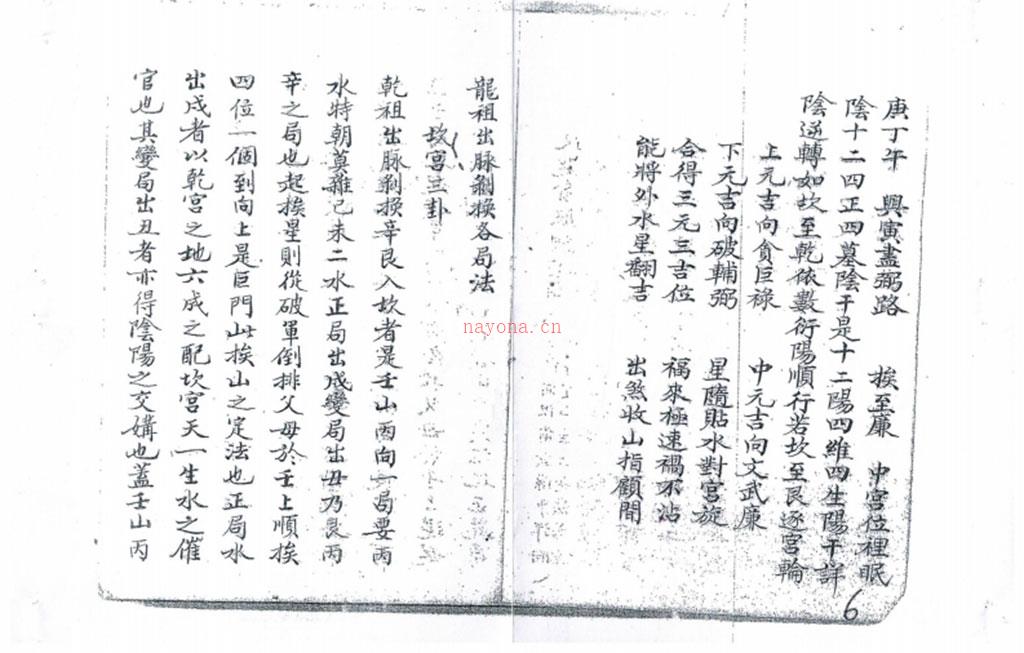 庚丁午 興寅盡弼路 挨至廉 中宮位裡眠
陰十二四正四墓陰干是十二陽四維四生陽干詳
陰逆轉如坎至乾依數衍陽順行若坎至艮逐宮輪
上元吉向貪巨祿 中元吉向文武廉
下元吉向破輔弼 星隨貼水對宮旋
合得三元三吉位 福來極速禍不沾
能將外水星翻吉 出煞收山指顧間
6
龍祖出脉剝換各局法
坎宮三卦
乾祖出脉剝換辛艮入坎者是壬山丙向一局要丙
水特朝莫雜己未二水正局出戍變局出丑乃艮丙
辛之局也起挨星則從破軍倒排父母於壬上順挨
四位一個到向上是巨門山挨山之定法也正局水
出戍者以乾宮之地六成之配坎宮天一生水之催
官也其變局出丑者亦得陰陽之交媾也蓋壬山丙
nayona.cn